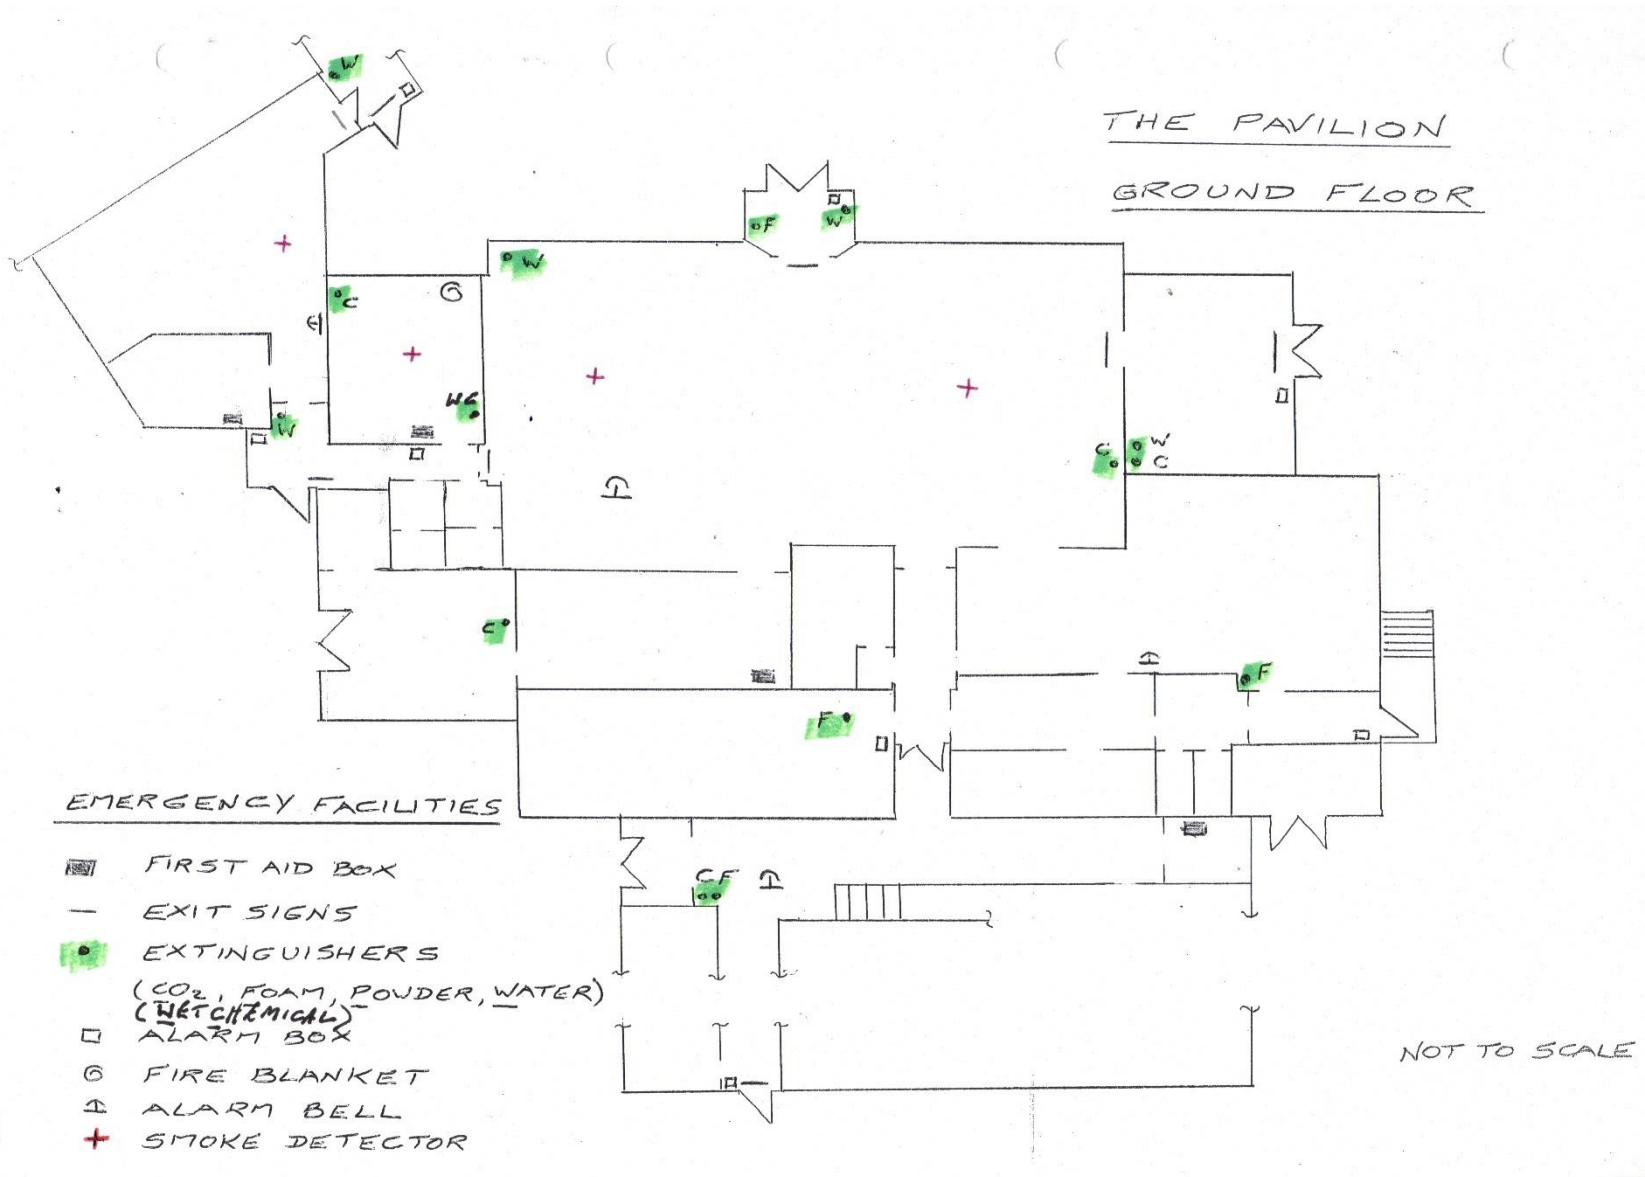 THE PAVILION
GROUND FLOOR
W
F
W
W
C
WC
W
C
W
C
C
F
F
CF
EMERGENCY FACILITIES
FIRST AID BOX
EXIT SIGNS
EXTINGUISHERS
(CO2, FOAM, POWDER, WATER)
(WETCHEMICAL)
ALARM BOX
FIRE BLANKET
ALARM BELL
SMOKE DETECTOR
NOT TO SCALE